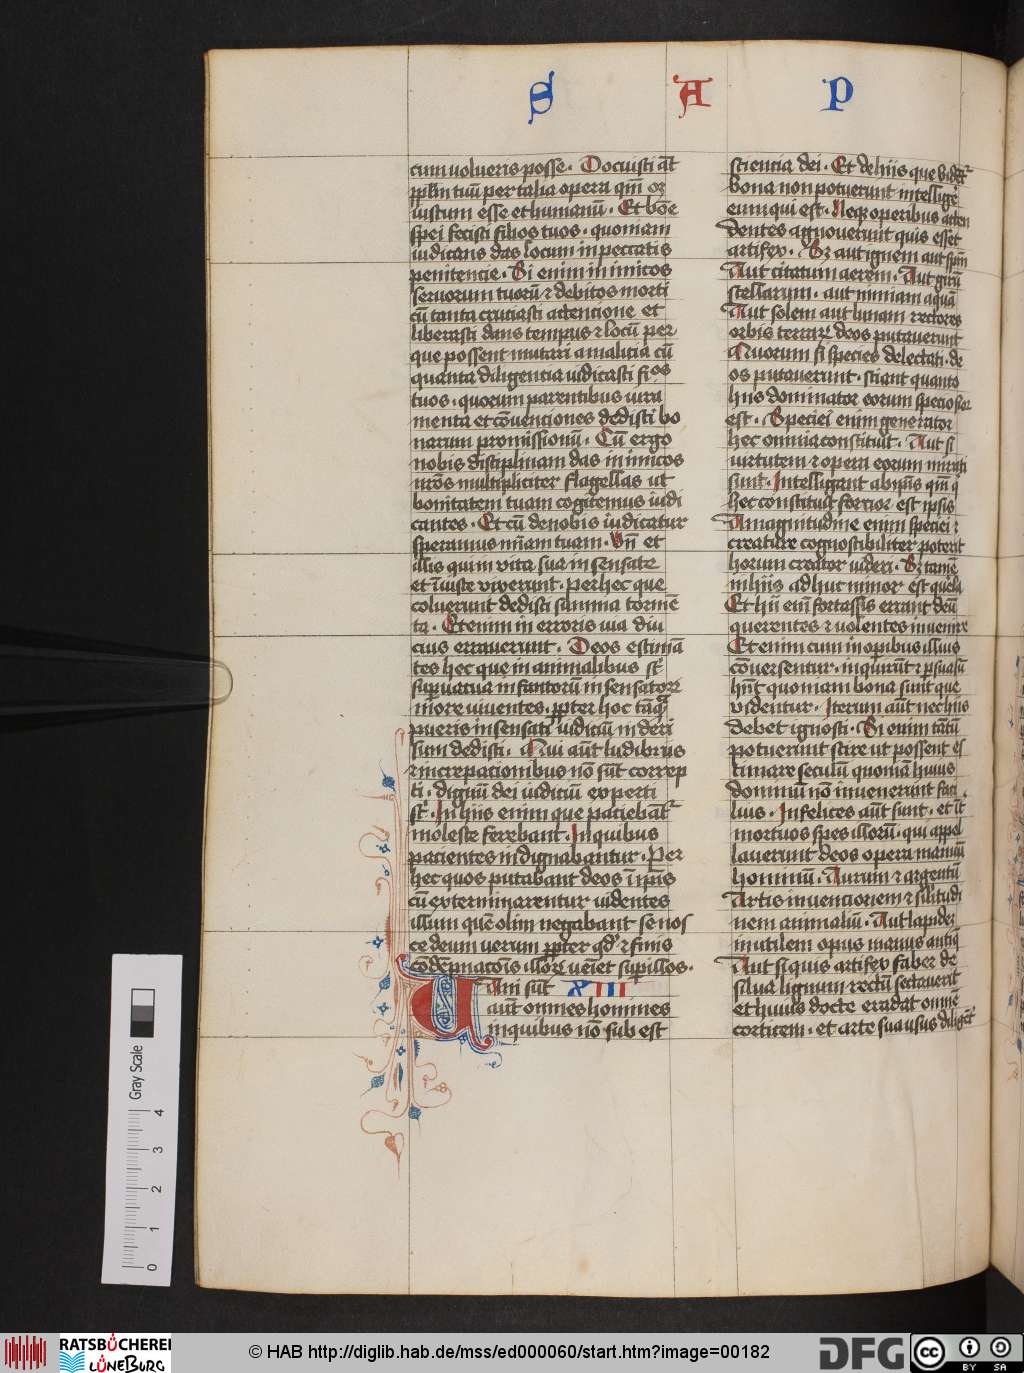 S A P
cum volueris posse. Docuisti aūt
pplm̄ tuū per talia opera qm̄ oꝫ
iustum esse et humanū. Et bōe
spei fecisti filios tuos. quoniam
iudicans das locum in peccatis
penitencie. Si enim inimicos
seruorum tuorū ⁊ debitos morti
cū tanta cruciasti attencione et
liberasti dans tempus ⁊ locū per
que possent mutari a malicia cū
quanta diligencia iudicasti fios
tuos. quorum parentibus iura
menta et cōuenciones dedisti bo
narum promissionū. Cū ergo
nobis disciplinam das inimicos
nr̄os multipliciter flagellas ut
bonitatem tuam cogitemus iudi
cantes. Et cū de nobis iudicatur
speramus mīam tuam. Vn̄ et
illis qui in vita sua insensate
et iniuste vixerunt. per hec que
coluerunt dedisti summa tormē
ta. Etenim in erroris uia diu
cius errauerunt. Deos estimā
tes hec que in animalibus st̄
supuacua infantorū insensatorꝝ
more viuentes. ꝓpter hoc tāqꝫ
pueris insensatis iudiciū in deri
sum dedisti. Qui aūt ludibriis
⁊ increpationibus nō sūt correp
ti. dignū dei iudiciū experti
st̄. In hiis enim que paciebant̄
moleste ferebant. In quibus
pacientes indignabantur. Per
hec quos putabant deos ī ipīs
cū exterminarentur uidentes
illum quē olim negabant se nos
ce deum uerum ꝓpter qd̓ ⁊ finis
cōdēpnacōis illorꝝ ueīet sup illos.
Vani sūt XIII
aūt omnes homines
in quibus nō sub est
sciencia dei. Et de hiis que vident̄
bona non potuerunt intellige
eum qui est. Neqꝫ operibus atten
dentes agnouerunt quis esset
artifex. Sꝫ aut ignem aut spm̄
Aut citatum aerem. Aut girū
stellarum. aut nimiam aquā
Aut solem aut lunam rectores
orbis terrarꝝ deos putauerunt
Quorum si species delectati. de
os putauerunt. sciant quanto
hiis dominator eorum speciosior
est. Speciei enim generator
hec omnia constituit. Aut si
uirtutem ⁊ opera eorum mirati
sunt. Intelligant ab ipīs qm̄ q̄
hec constituit forcior est ipsis
A magnitudine enim speciei ⁊
creature cognoscibiliter poterit
horum creator uideri. Sꝫ tamē
in hiis adhuc minor est querela
Et hii enī fortassis errant deū
querentes ⁊ volentes inuenire
Etenim cum in opibus illius
cōuersentur. inquirūt ⁊ psuasū
hn̄t quoniam bona sunt que
videntur. Iterum aūt nec hiis
debet ignosci. Si enim tātū
potuerunt scire ut possent es
timare seculū quoniā huius
dominū nō inuenerunt faci
lius. Infelices aūt sunt. et īt̄
mortuos spes illorū. qui appel
lauerunt deos opera manuū
hominū. Aurum ⁊ argentū
Artis inuencionem ⁊ silitudi
nem animaliū. Aut lapidez
inutilem opus manus antiq̄
Aut si quis artifex faber de
silua lignum rectū sectauerit
et huius docte eradat omnē
corticem. et arte sua usus diligēt̄
Gray Scale
0 1 2 3 4
RATSBÜCHEREI
LÜNEBURG
© HAB http://diglib.hab.de/mss/ed000060/start.htm?image=00182
DFG
cc BY SA